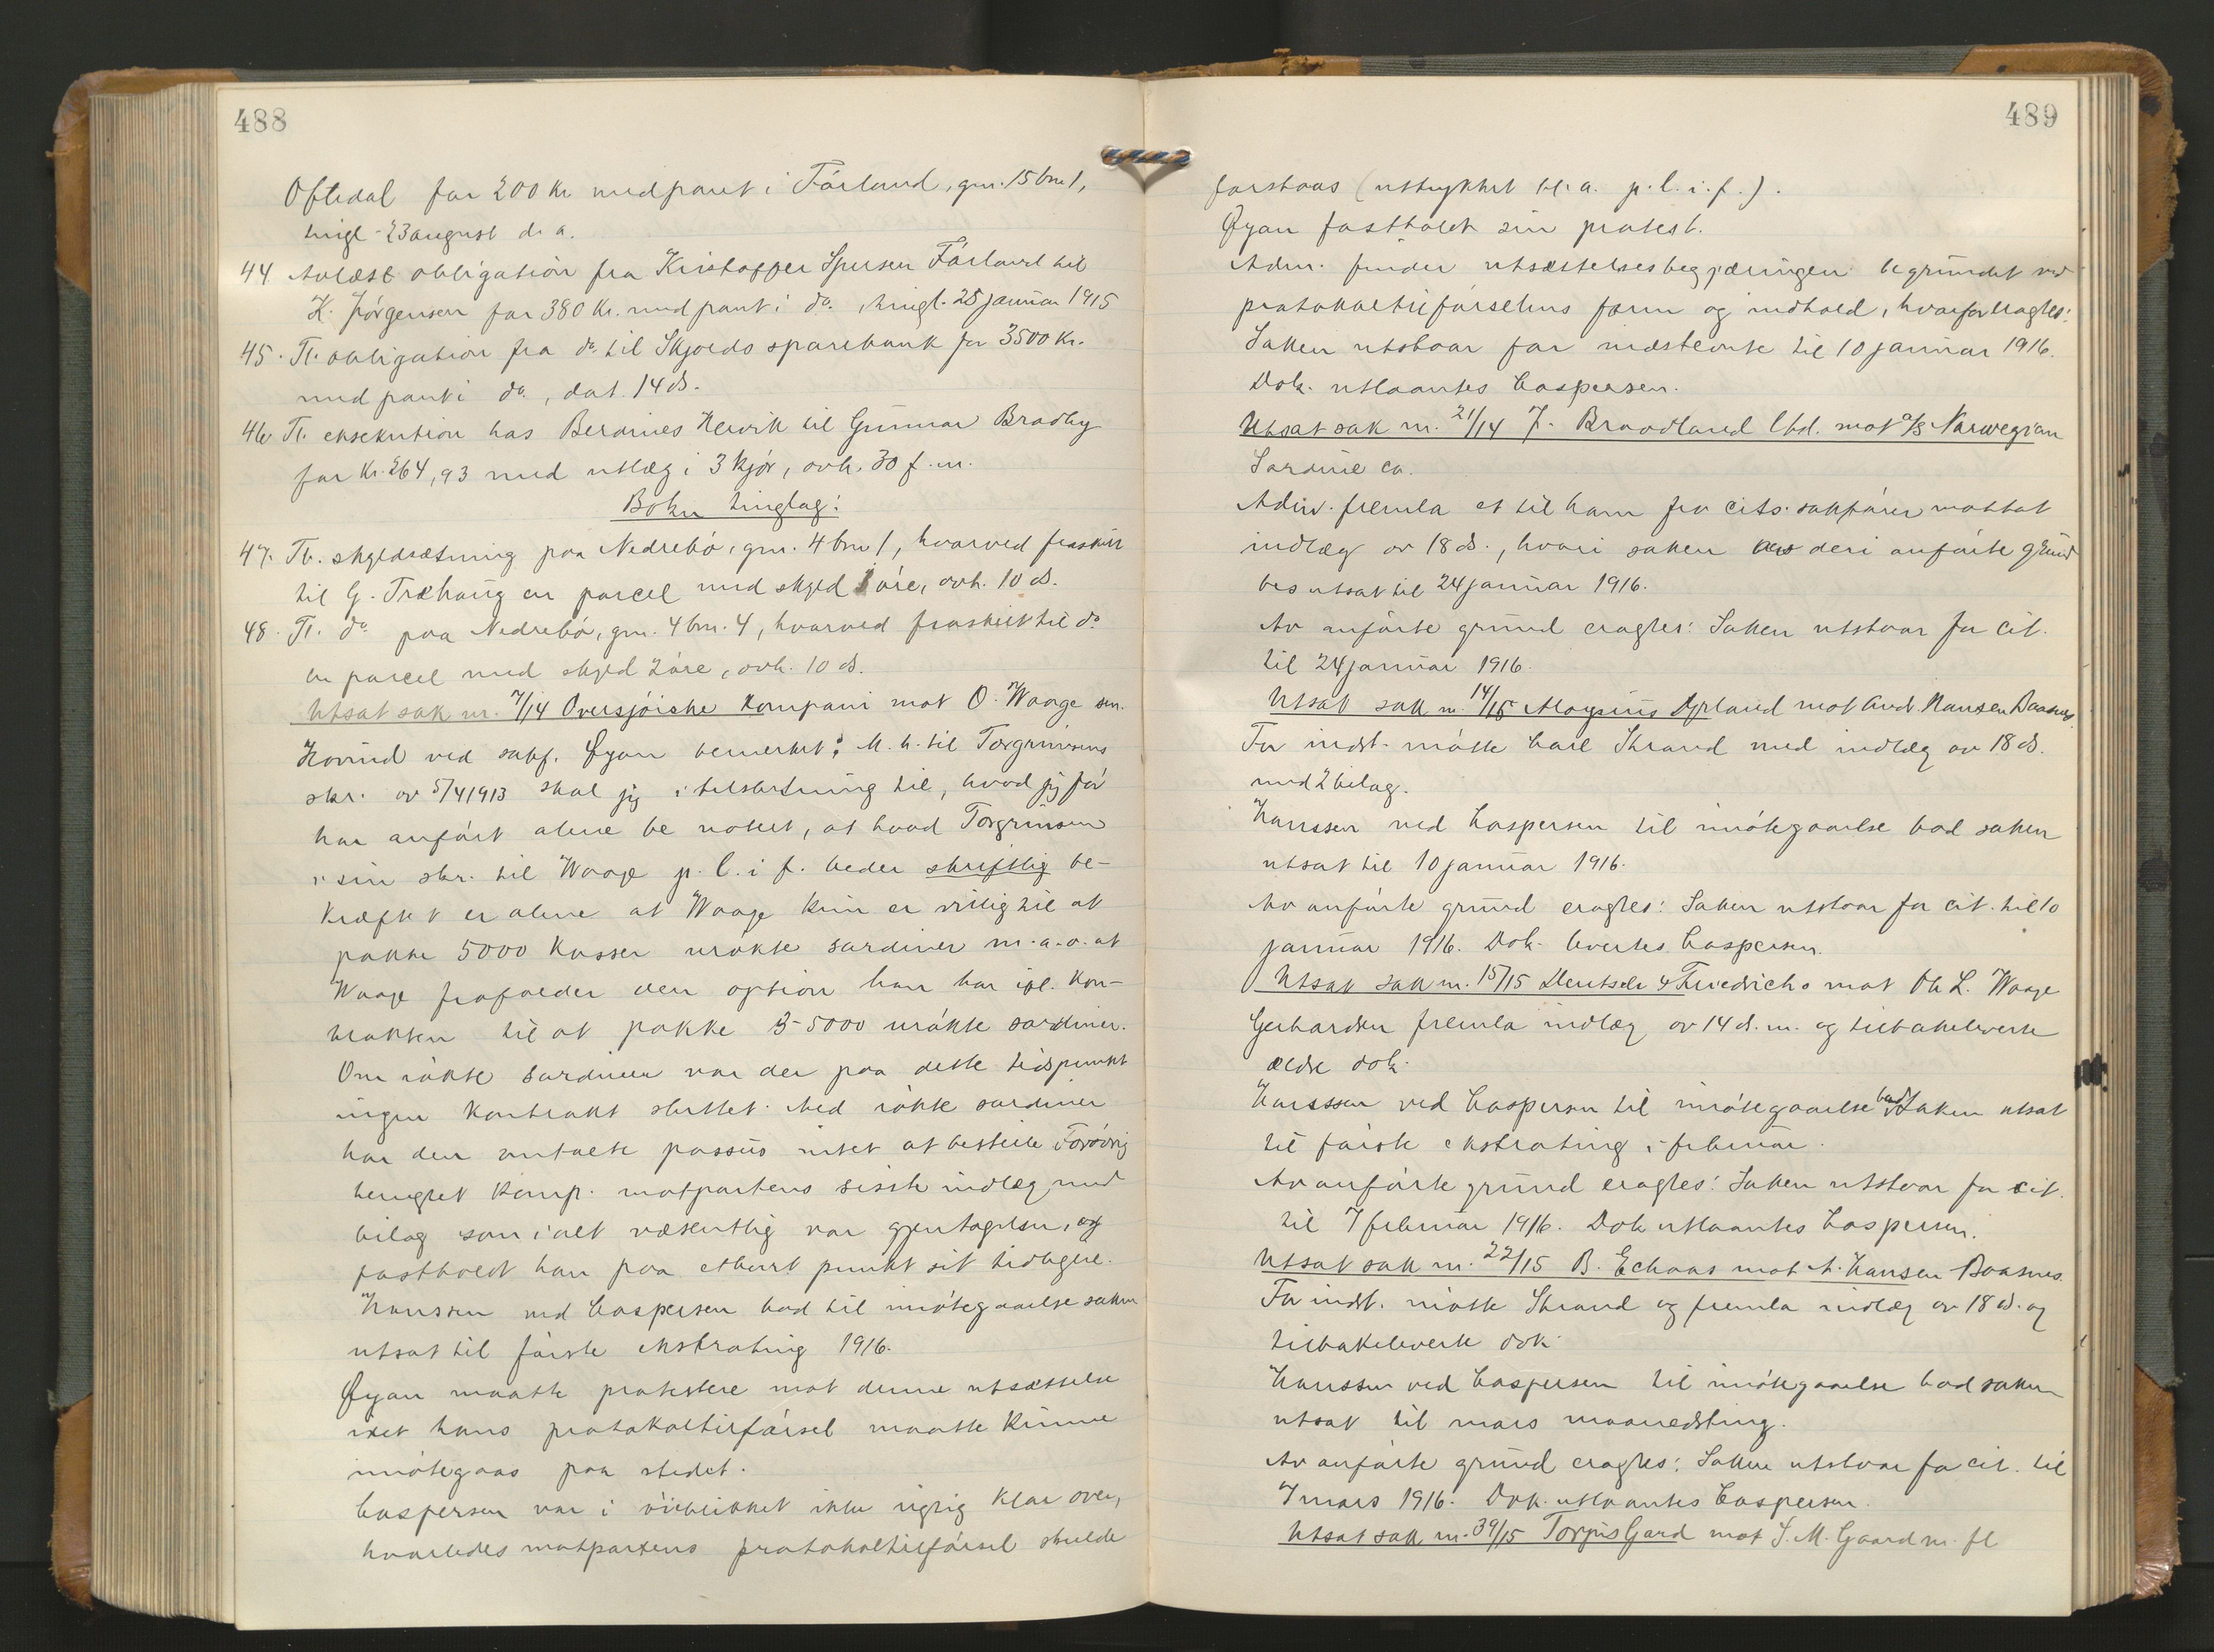 488
Oftedal for 200 kr med pant i Førland, gnr. 15 bnr 1,
tingl. 23 august d. a.
44. Avlæst obligation fra Kristoffer Førland til
K. Jørgensen for 380 kr. med pant i do., tingl. 25 januar 1915
45. Tl. obligation fra do. til Skjolds sparebank for 3500 kr.
med pant i do., dat. 14 ds.
46. Tl. eksekution hos Berdines Hervik til Gunnar Bradby
for kr. 264,93 med utlæg i 3 kjør, avh. 30 f. m.
Bokn tinglag:
47. Tl. skyldsætning paa Nedrebø, gnr. 4 bnr 1, hvorved fraskilt
til G. Træhaug en parcel med skyld 1 øre, avh. 10 ds.
48. Tl. do paa Nedrebø, gnr. 4 bnr. 4, hvorved fraskilt til do
en parcel med skyld 2 øre, avh. 10 ds.
Utsat sak nr. 7/14 Oversjøiske Kompani mot O. Waage sen.
Hovind ved sakf. Øyan bemerket: M. h. til Torgrimsens
skr. av 5/4 1913 skal jeg i tilslutning til, hvad jeg før
har anført alene be notert, at hvad Torgrimsen
i sin skr. til Waage p. l. i f. beder skriftlig be-
kræftet er alene at Waage kun er villig til at
pakke 5000 kasser urøkte sardiner m. a. o. at
Waage frafalder den option han har ifl. kon-
trakten til at pakke 3-5000 urøkte sardiner.
Om røkte sardiner var der paa dette tidspunkt
ingen kontrakt sluttet. Med røkte sardiner
har den omtalte passus intet at bestille. Forøvrig
benegtet komp. motpartens sisste indlæg med
bilag som i alt væsentlig var gjentagelser, og
fastholdt han paa ethvert punkt sit tidligere.
Hanssen ved Caspersen bad til imøtegaaelse saken
utsat til første ekstrating 1916.
Øyan maatte protestere mot denne utsættelse
idet hans protokoltilførsel maatte kunne
imøtegaas paa stedet.
Caspersen var i øieblikket ikke rigtig klar over,
hvorledes motpartens protokoltilførsel skulde
489
forstaaes (uttrykket bl. a. p. l. i. f.).
Øyan fastholdt sin protest.
Adm. finder utsættelsesbegjæringen begrundet ved
protokoltilførselens form og indhold, hvorfor eragtes:
Saken utstaar for indstevnte til 10 januar 1916.
Dok. utlaantes Caspersen.
Utsat sak nr. 21/14 J. Braadland Ltd. mot A/S Norwegian
Sardine co.
Adm. fremla et til ham fra cits. sakfører mottat
indlæg av 18 ds., hvori saken av deri anførte grund
bes utsat til 24 januar 1916.
Av anførte grund eragtes: Saken utstaar for cit.
til 24 januar 1916.
Utsat sak nr. 14/15 Aloysius Dyrland mot And. Hansen Baasnes
For indst. møtte Carl Strand med indlæg av 18 ds.
med 2 bilag.
Hanssen ved Caspersen til imøtegaaelse bad saken
utsat til 10 januar 1916.
Av anførte grund eragtes: Saken utstaar for cit. til 10
januar 1916. Dok. levertes Caspersen.
Utsat sak nr. 15/15 Deutsch & Friedrichs mot Ole L. Waage
Gerhardsen fremla indlæg av 14 d. m. og tilbakeleverte
ældre dok.
Hanssen ved Caspersen til imøtegaaelse bad saken utsat
til første ekstrating i februar.
Av anførte grund eragtes: Saken utstaar for cit.
til 7 februar 1916. Dok utlaantes Caspersen.
Utsat sak nr. 22/15 B. Echoas mot A. Hansen Baasnes.
For indst. møtte Strand og fremla indlæg av 18 ds. og
tilbakeleverte dok.
Hanssen ved Caspersen til imøtegaaelse bad saken
utsat til mars maanedsting.
Av anførte grund eragtes: Saken utstaar for cit. til
7 mars 1916. Dok. utlaantes Caspersen.
Utsat sak nr. 39/15 Torjus Gard mot S. M. Gaard m. fl